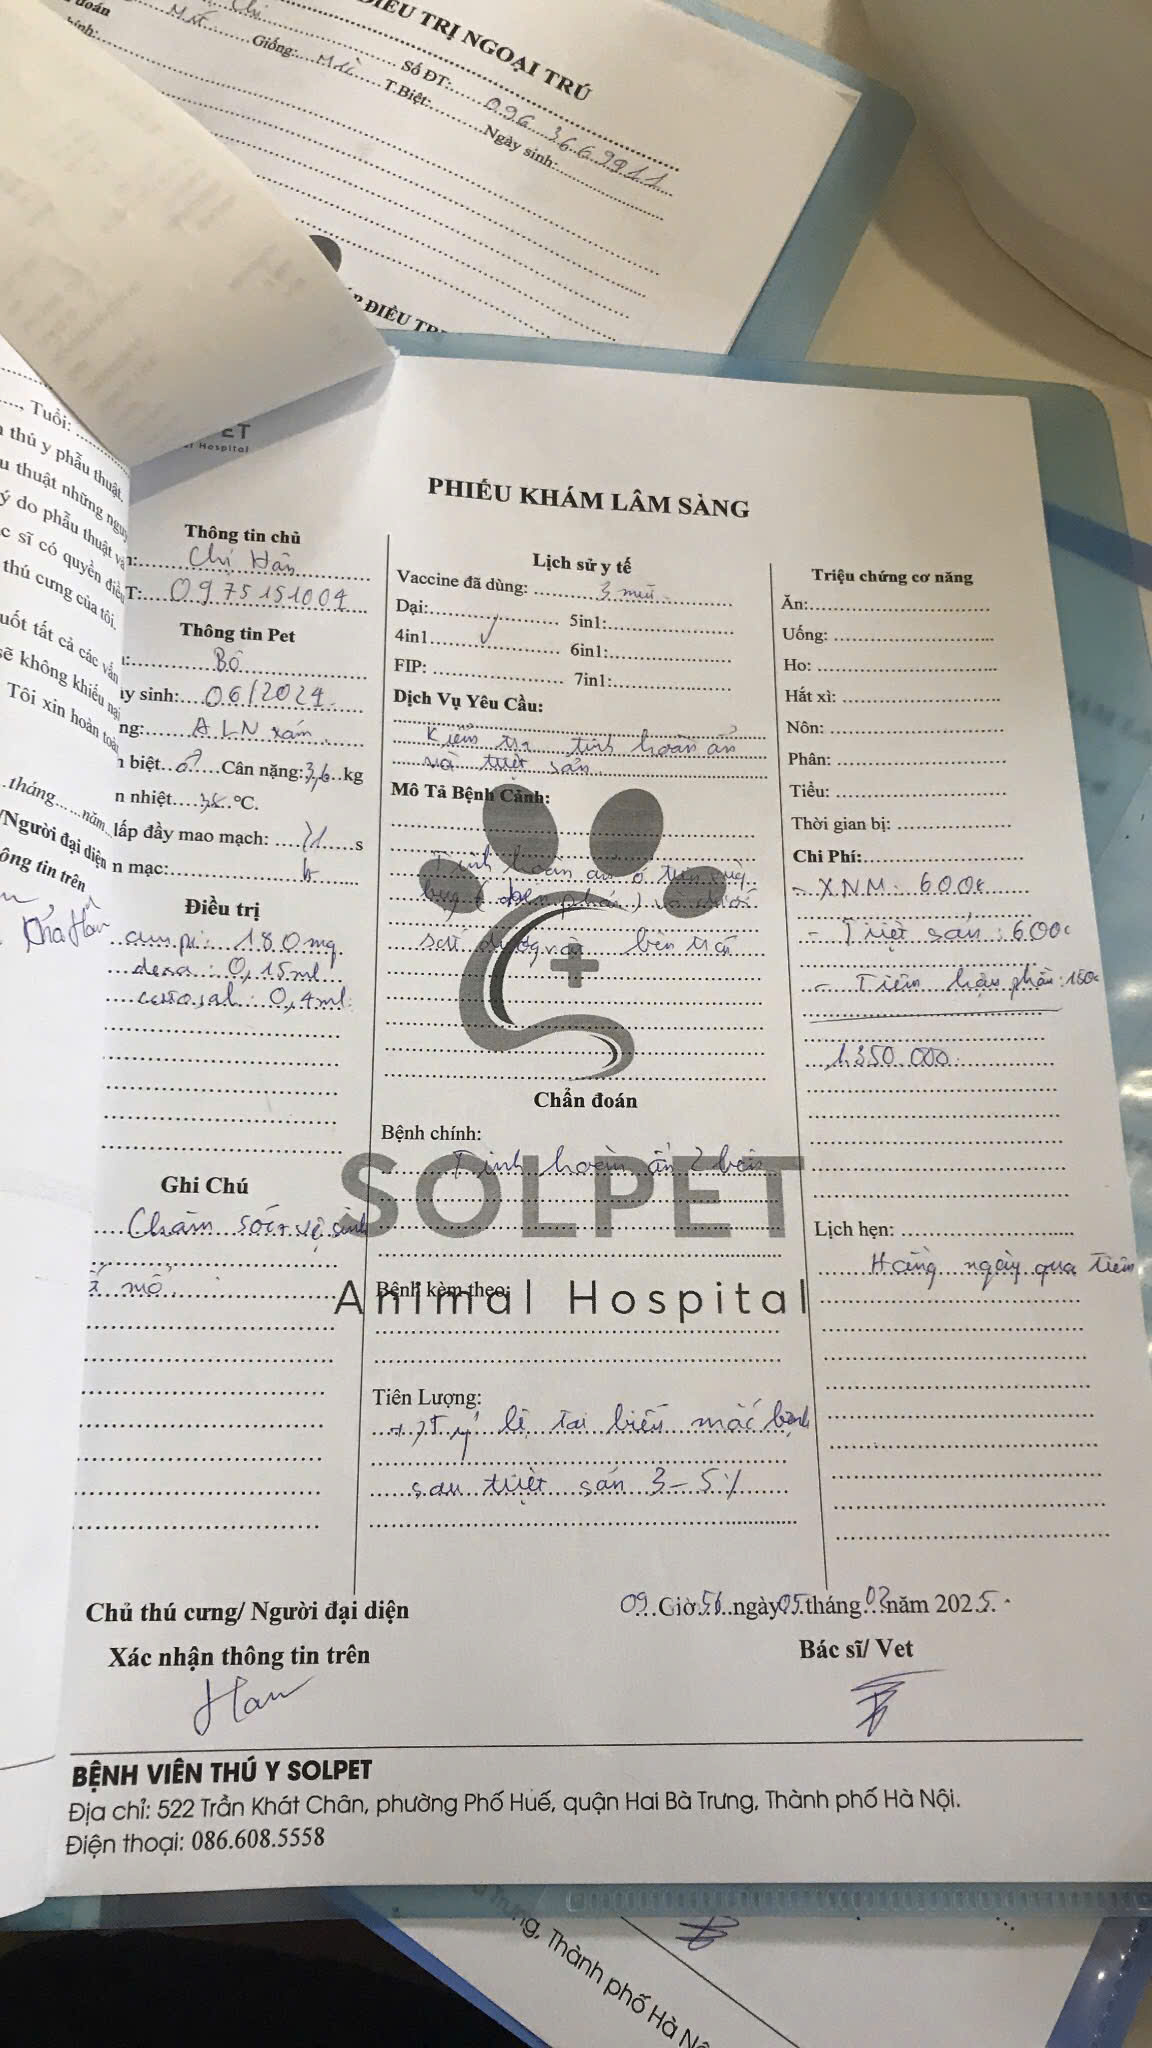 ĐIỀU TRỊ NGOẠI TRÚ
Chi
Số ĐT: 096 3669911
Giống: Mèo
T.Biệt:
Ngày sinh:
ĐIỀU TR
Tuổi:
thú y phẫu thuật.
thuật những ngu
lý do phẫu thuật và
sĩ có quyền điều
thú cưng của tôi.
suốt tất cả các vấn
sẽ không khiếu nại
Tôi xin hoàn toàn
tháng......năm
/Người đại diện
thông tin trên
ET
Hospital
PHIẾU KHÁM LÂM SÀNG
Thông tin chủ
Chị Hân
T: 0975151004
Thông tin Pet
Bô
sinh: 06/2024
ALN xám
biệt ♂ Cân nặng: 3,6 kg
nhiệt 38 °C.
lấp đầy mao mạch: <1 s
mạc: h
Điều trị
ampi: 180mg
dexa: 0,15ml
catosal: 0,4ml
Ghi Chú
Chăm sóc+vệ sinh
mổ
Lịch sử y tế
Vaccine đã dùng: 3 mũi
Dại:
5in1:
4in1 ✓
6in1:
FIP:
7in1:
Dịch Vụ Yêu Cầu:
Kiểm tra tinh hoàn ẩn
và triệt sản
Mô Tả Bệnh Cảnh:
Tinh hoàn ẩn ở trên vùng
bụng (bên phải) và dưới
bên trái
Chẩn đoán
Bệnh chính:
Tinh hoàn ẩn 2 bên
SOLPET
Animal Hospital
Bệnh kèm theo:
Tiên Lượng:
Tỷ lệ tai biến mắc bệnh
sau triệt sản 3-5%
Triệu chứng cơ năng
Ăn:
Uống:
Ho:
Hắt xì:
Nôn:
Phân:
Tiểu:
Thời gian bị:
Chi Phí:
- XNM: 600k
- Triệt sản: 600k
- Tiêm hậu phẫu: 150k
1.350.000
Lịch hẹn:
Hằng ngày qua tiêm
Chủ thú cưng/ Người đại diện
Xác nhận thông tin trên
Han
09 Giờ 56 ngày 05 tháng 02 năm 2025.
Bác sĩ/ Vet
BỆNH VIỆN THÚ Y SOLPET
Địa chỉ: 522 Trần Khát Chân, phường Phố Huế, quận Hai Bà Trưng, Thành phố Hà Nội.
Điện thoại: 086.608.5558
Trưng, Thành phố Hà Nộ